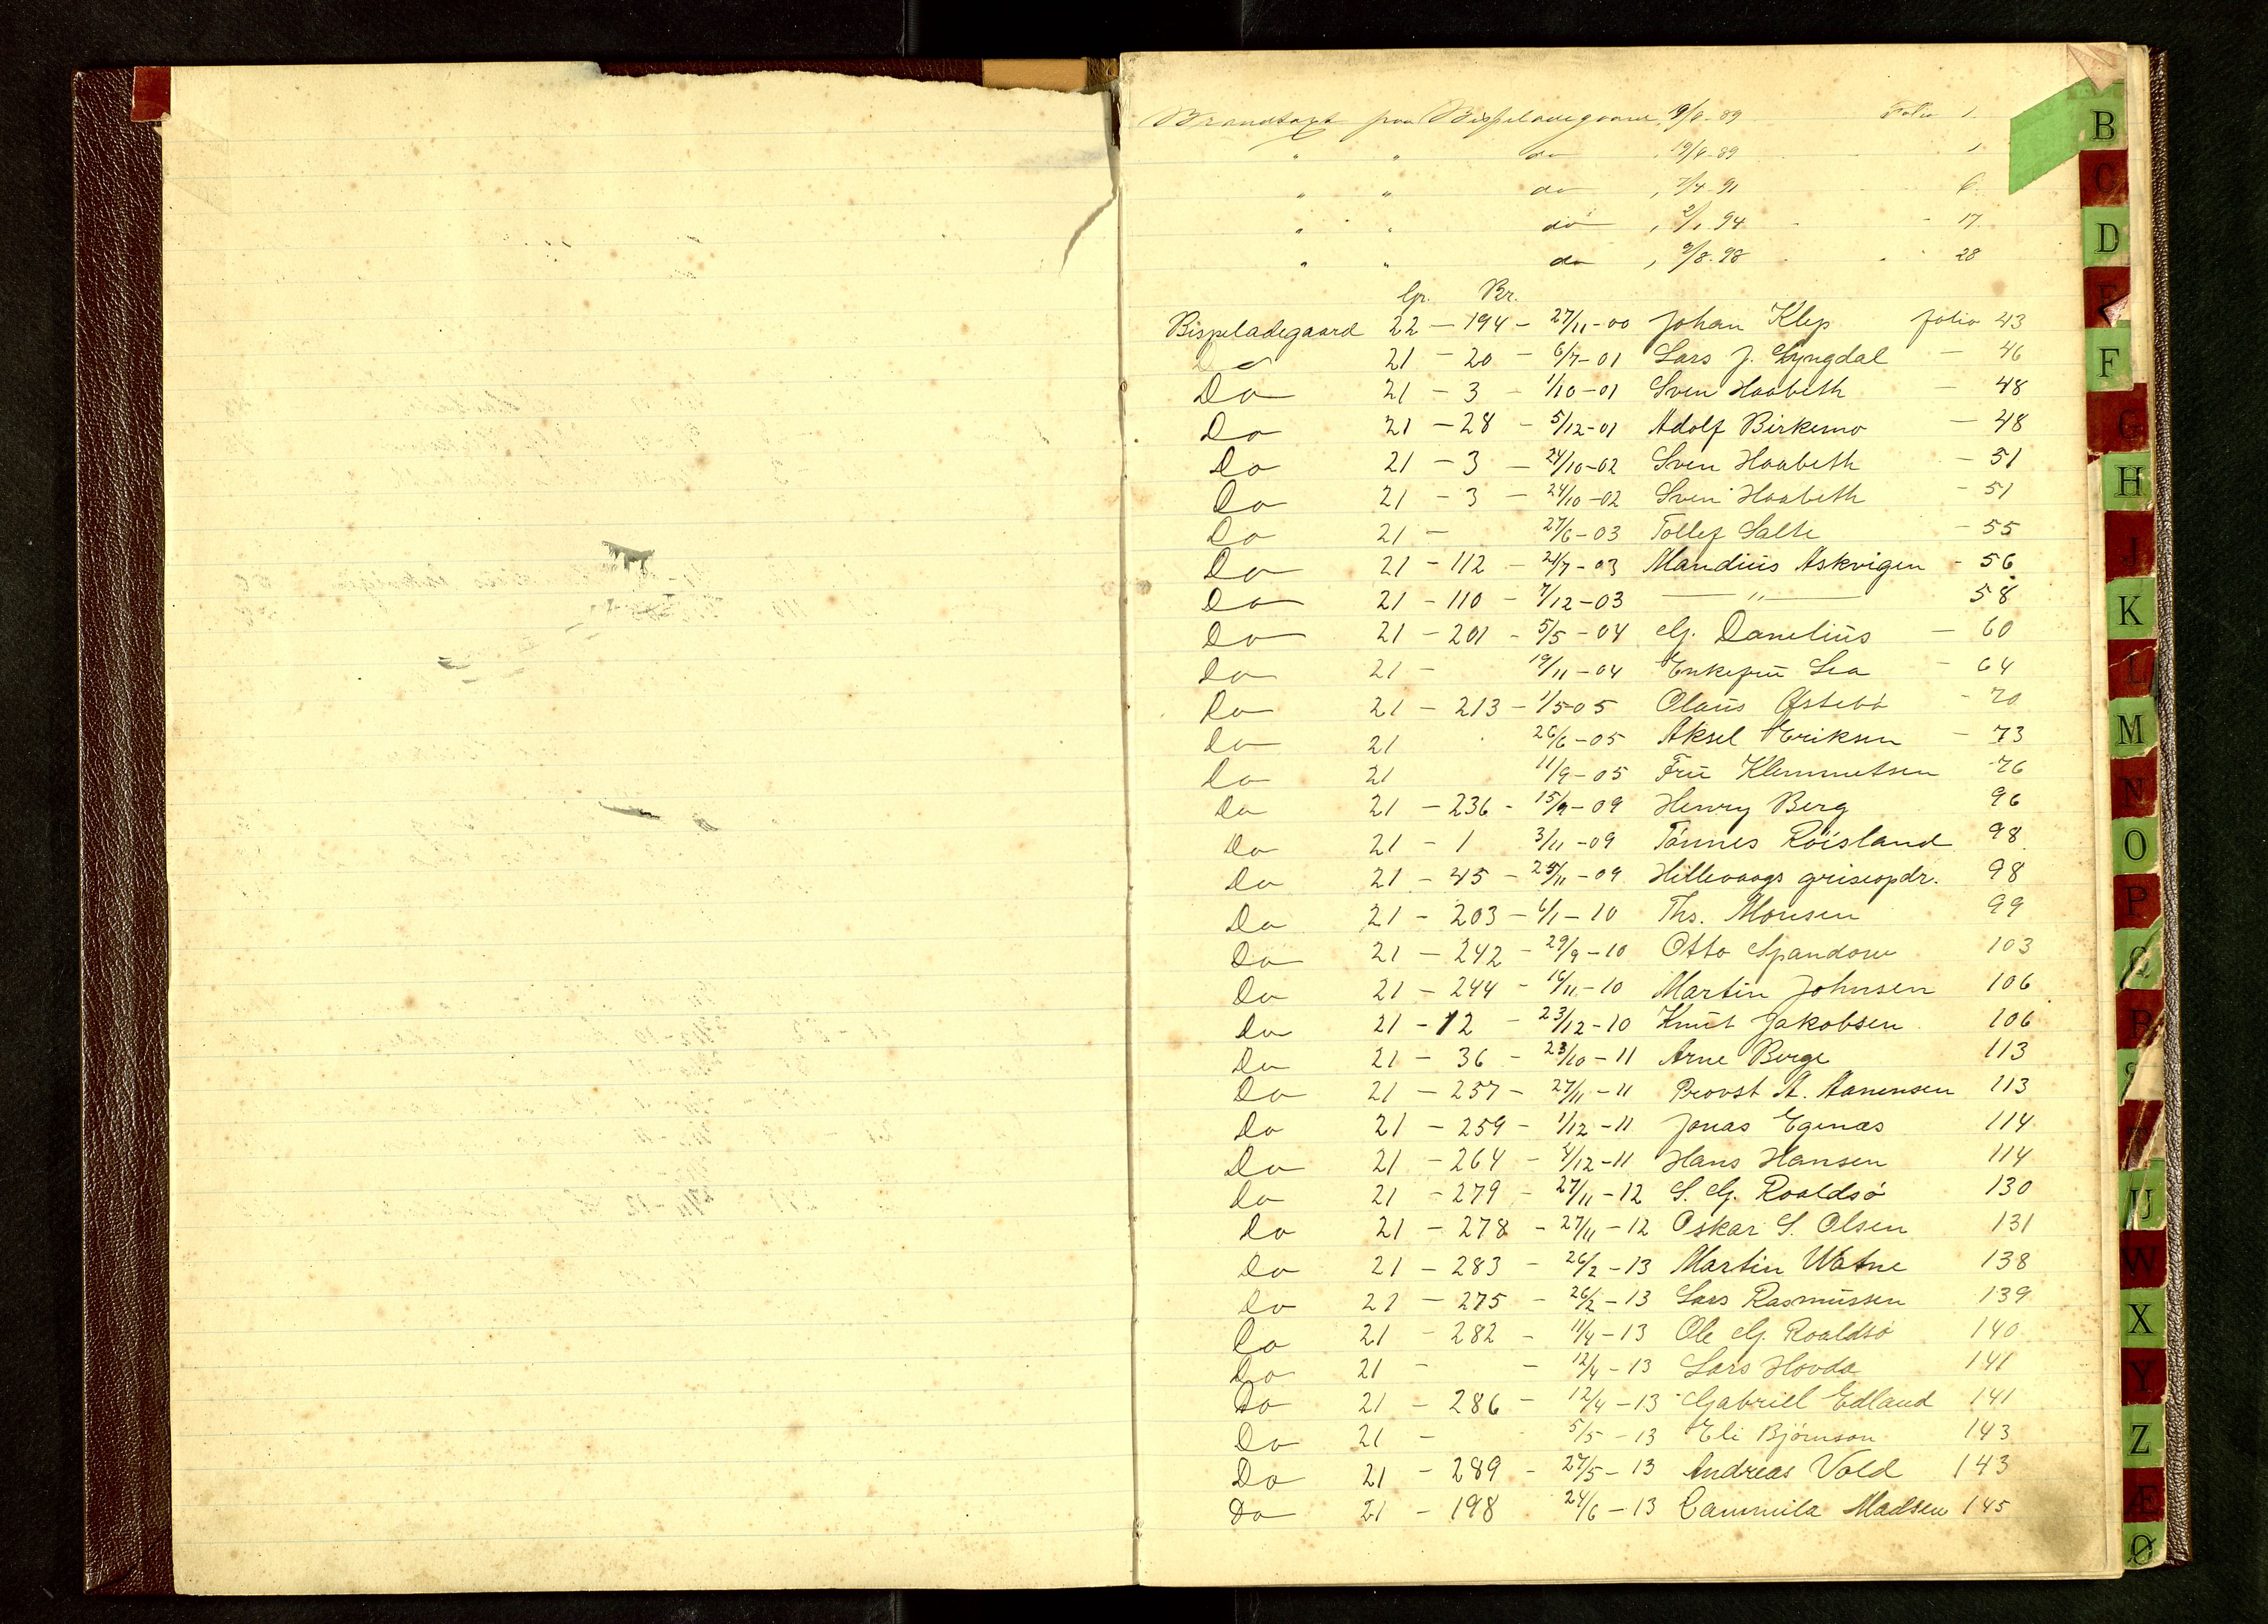 Brandtaxt paa Bispeladegaard, 19/6-89 Folio 1.
" " do , 19/6-89 1
" " do , 7/4-91 6.
" " do , 2/1 94 17
" " do , 9/8-98 28
Gr. Br.
Bispeladegaard 22 - 194 - 27/11-00 Johan Klep folio 43
Do 21 - 20 - 6/7-01 Lars J. Lyngdal - 46
Do 21 - 3 - 1/10-01 Sven Haabeth - 48
Do 21 - 28 - 5/12-01 Adolf Birkemo - 48
Do 21 - 3 - 24/10-02 Sven Haabeth - 51
Do 21 - 3 - 24/10-02 Sven Haabeth - 51
Do 21 - 27/6-03 Tollef Salte - 55
Do 21 - 112 - 21/7-03 Mandius Askvigen - 56
Do 21 - 110 - 7/12-03 — " — 58
Do 21 - 201 - 5/5-04 G. Danelius - 60
Do 21 - 19/11-04 Enkefru Lea - 64
Do 21 - 213 - 1/5-05 Olaus Østebö - 70
Do 21 26/6-05 Aksel Eriksen - 73
Do 21 11/9-05 Fru Klemmetsen - 76
Do 21 - 236 - 15/9-09 Henry Berg 96
Do 21 - 1 3/11-09 Tönnes Röisland 98
Do 21 - 45 - 25/11-09 Hillevaags griseopdr. 98
Do 21 - 203 - 6/1-10 Ths. Monsen 99
Do 21 - 242 - 29/9-10 Otto Spandow 103
Do 21 - 244 - 16/11-10 Martin Johnsen 106
Do 21 - 12 - 23/12-10 Knut Jakobsen 106
Do 21 - 36 - 23/10-11 Arne Berge 113
Do 21 - 257 - 27/11-11 Provst A. Aanensen 113
Do 21 - 259 - 1/12-11 Jonas Egenæs 114
Do 21 - 264 - 4/12-11 Hans Hansen 114
Do 21 - 279 - 27/11-12 S. G. Roaldsö 130
Do 21 - 278 - 27/11-12 Oskar S. Olsen 131
Do 21 - 283 - 26/2-13 Martin Watne 138
Do 21 - 275 - 26/2-13 Lars Rasmussen 139
Do 21 - 282 - 11/4-13 Ole G. Roaldsö 140
Do 21 - - 12/4-13 Lars Hovda 141
Do 21 - 286 - 12/4-13 Gabriell Edland 141
Do 21 - 5/5-13 Eli Björnson 143
Do 21 - 289 - 27/5-13 Andreas Vold 143
Do 21 - 198 24/6-13 Cammila Madsen 145
B
C
D
E
F
G
H
J
K
L
M
N
O
P
Q
R
S
T
U
W
X
Y
Z
Æ
Ø